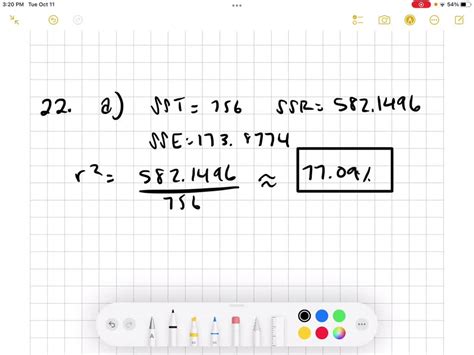 3:20 PM Tue Oct 11
54%
22. a) SST = 756 SSR = 582.1496
SSE = 173.8774
r² = 582.1496 / 756 ≈ 77.09%